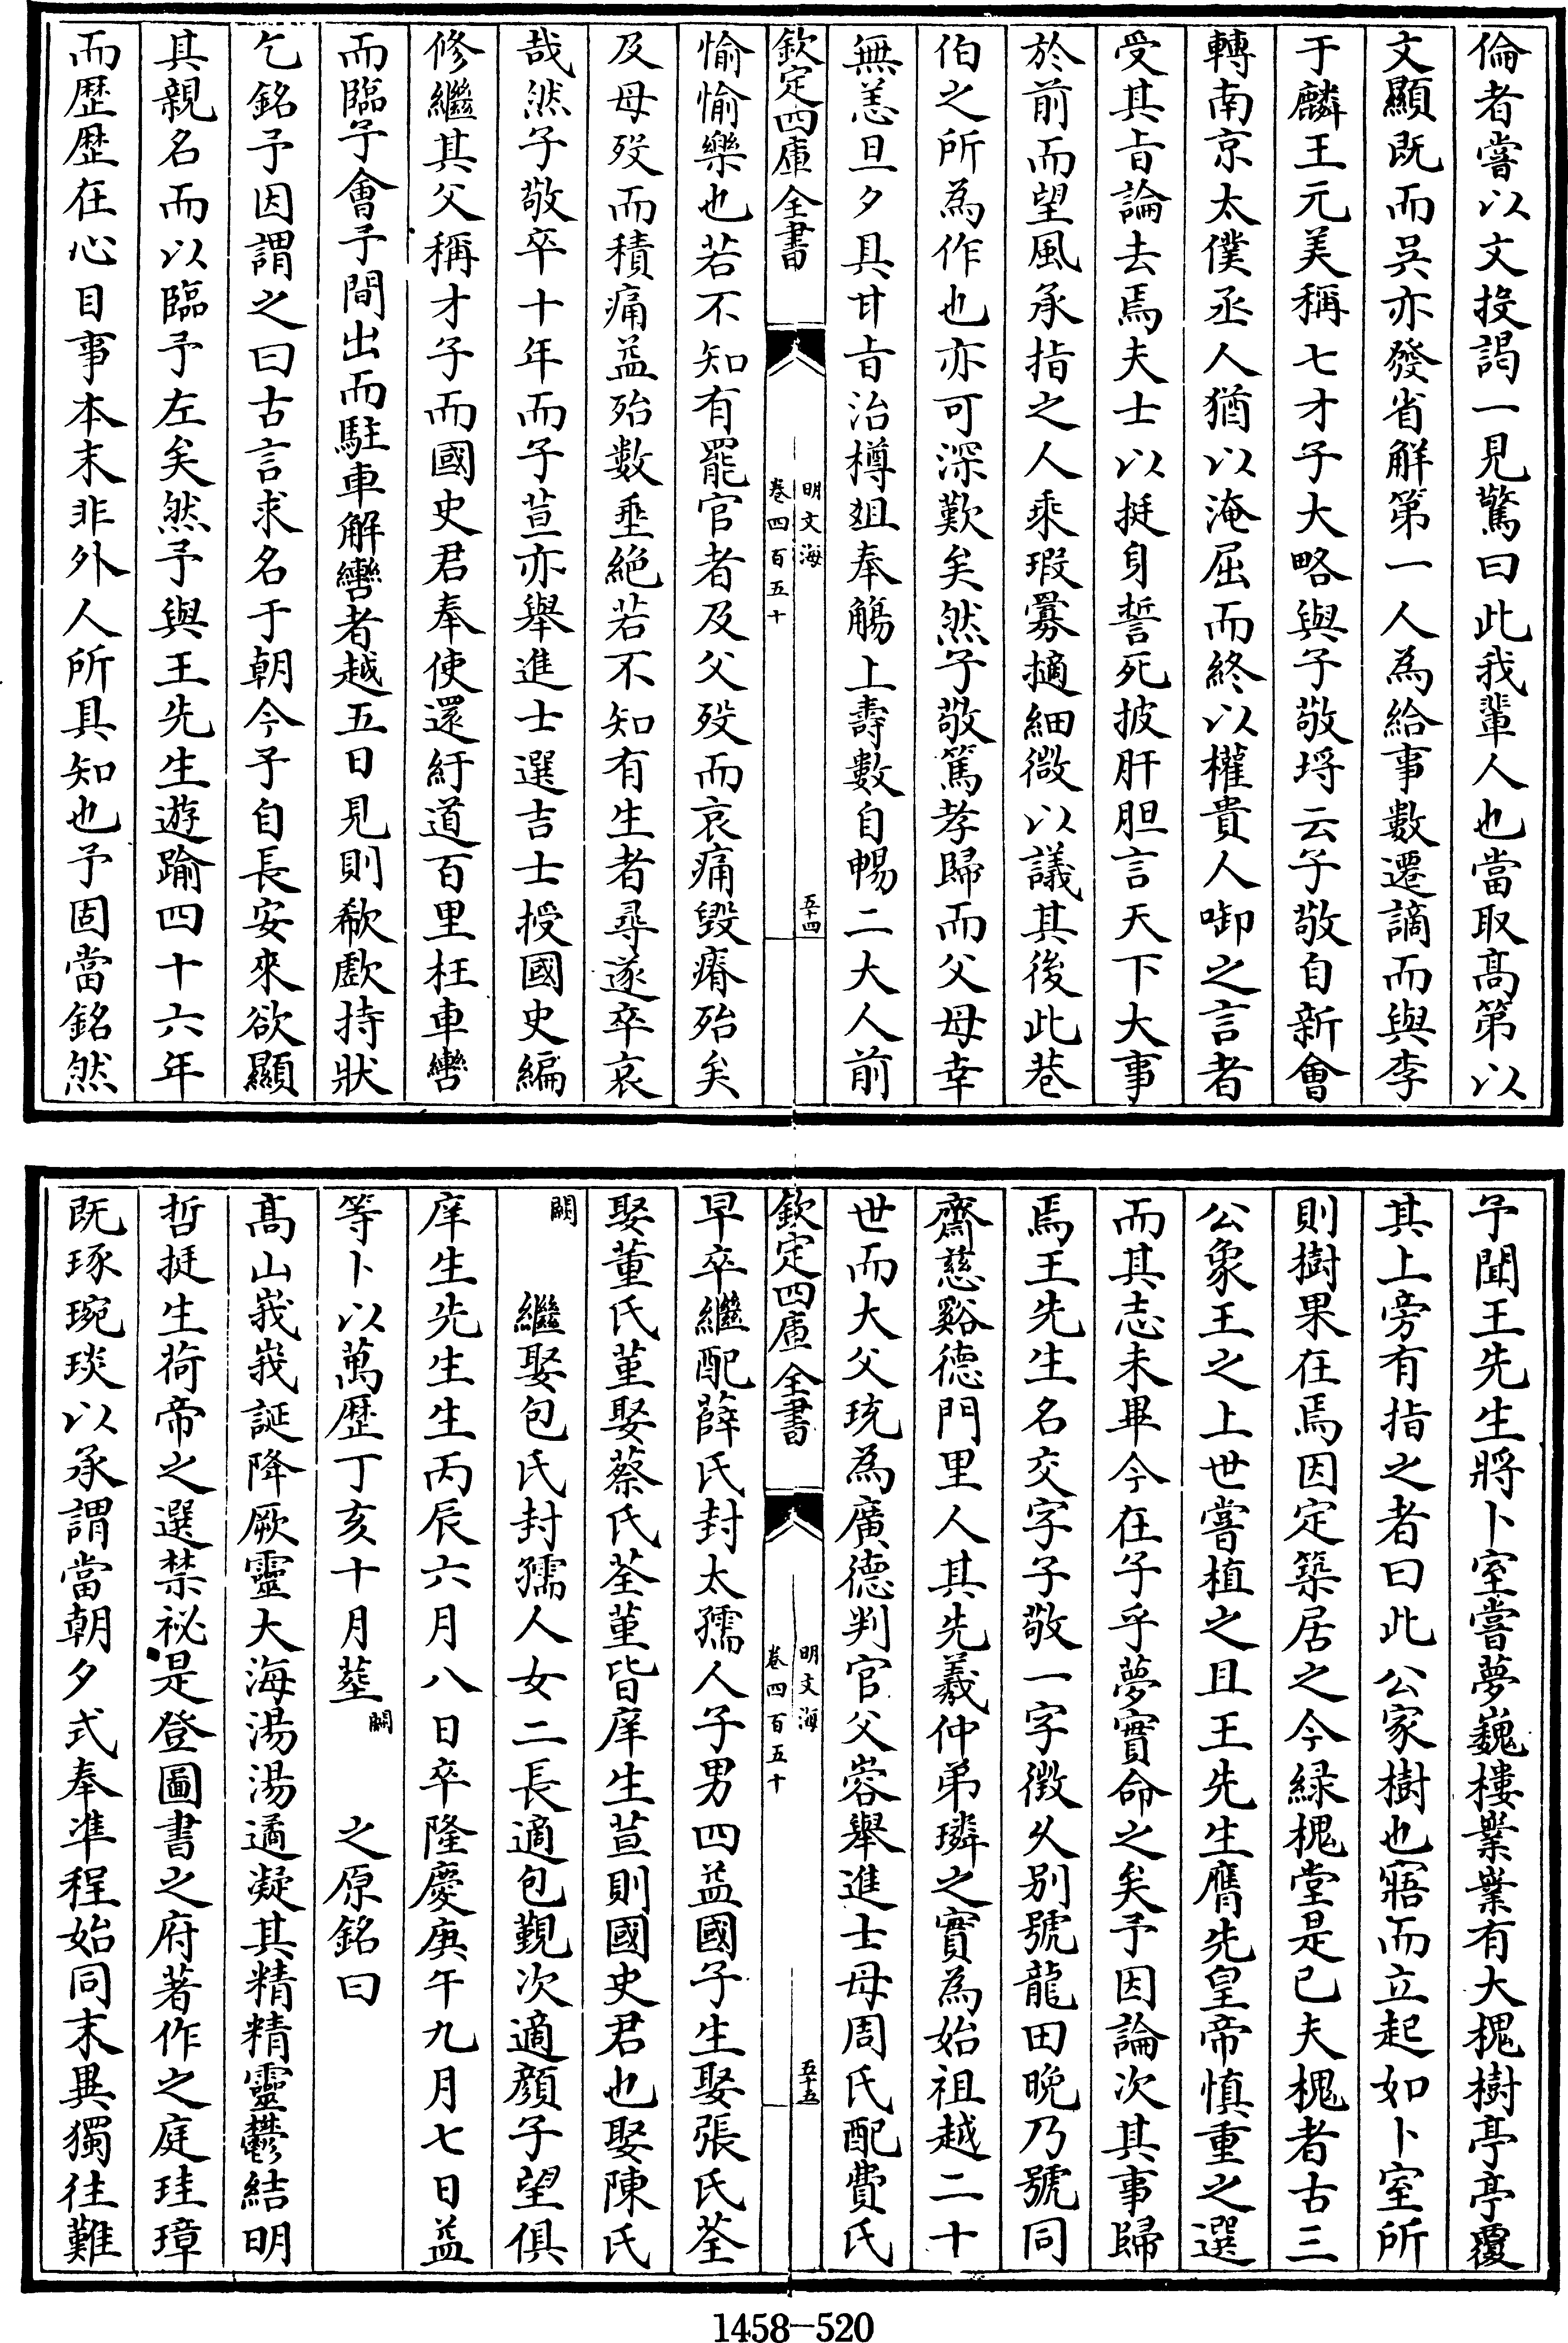 倫者嘗以文投謁一見驚曰此我輩人也當取高第以
文顯既而吳亦發省解第一人為給事數遷謫而與李
于麟王元美稱七才子大略與子敬埒云子敬自新會
轉南京太僕丞人猶以淹屈而終以權貴人啣之言者
受其旨論去焉夫士以挺身誓死披肝胆言天下大事
於前而望風承指之人乘瑕釁摘細微以議其後此巷
伯之所為作也亦可深歎矣然子敬篤孝歸而父母幸
無恙旦夕具甘旨治樽俎奉觴上壽數自暢二大人前
欽定四庫全書
明文海
卷四百五十
五十四
愉愉樂也若不知有罷官者及父歿而哀痛毀瘠殆矣
及母歿而積痛益殆數垂絕若不知有生者尋遂卒哀
哉然子敬卒十年而子荁亦舉進士選吉士授國史編
修繼其父稱才子而國史君奉使還紆道百里枉車轡
而臨予會予間出而駐車解轡者越五日見則欷歔持狀
乞銘予因謂之曰古言求名于朝今子自長安來欲顯
其親名而以臨予左矣然予與王先生遊踰四十六年
而歴歴在心目事本末非外人所具知也予固當銘然
予聞王先生將卜室嘗夢巍樓業業有大槐樹亭亭覆
其上旁有指之者曰此公家樹也寤而立起如卜室所
則樹果在焉因定築居之今緑槐堂是已夫槐者古三
公象王之上世嘗植之且王先生膺先皇帝慎重之選
而其志未畢今在子乎夢實命之矣予因論次其事歸
焉王先生名交字子敬一字徴久别號龍田晩乃號同
齋慈谿德門里人其先羲仲弟璘之實為始祖越二十
世而大父珫為廣德判官父嵤舉進士母周氏配費氏
欽定四庫全書
明文海
卷四百五十
五十五
早卒繼配薛氏封太孺人子男四益國子生娶張氏荃
娶董氏堇娶蔡氏荃堇皆庠生荁則國史君也娶陳氏
闕 繼娶包氏封孺人女二長適包覲次適顔子望俱
庠生先生生丙辰六月八日卒隆慶庚午九月七日益
等卜以萬歴丁亥十月塟闕 之原銘曰
高山峩峩誕降厥靈大海湯湯遹凝其精精靈鬱結明
哲挺生荷帝之選禁祕是登圖書之府著作之庭珪璋
既琢琬琰以承謂當朝夕式奉準程始同末異獨往難
1458—520